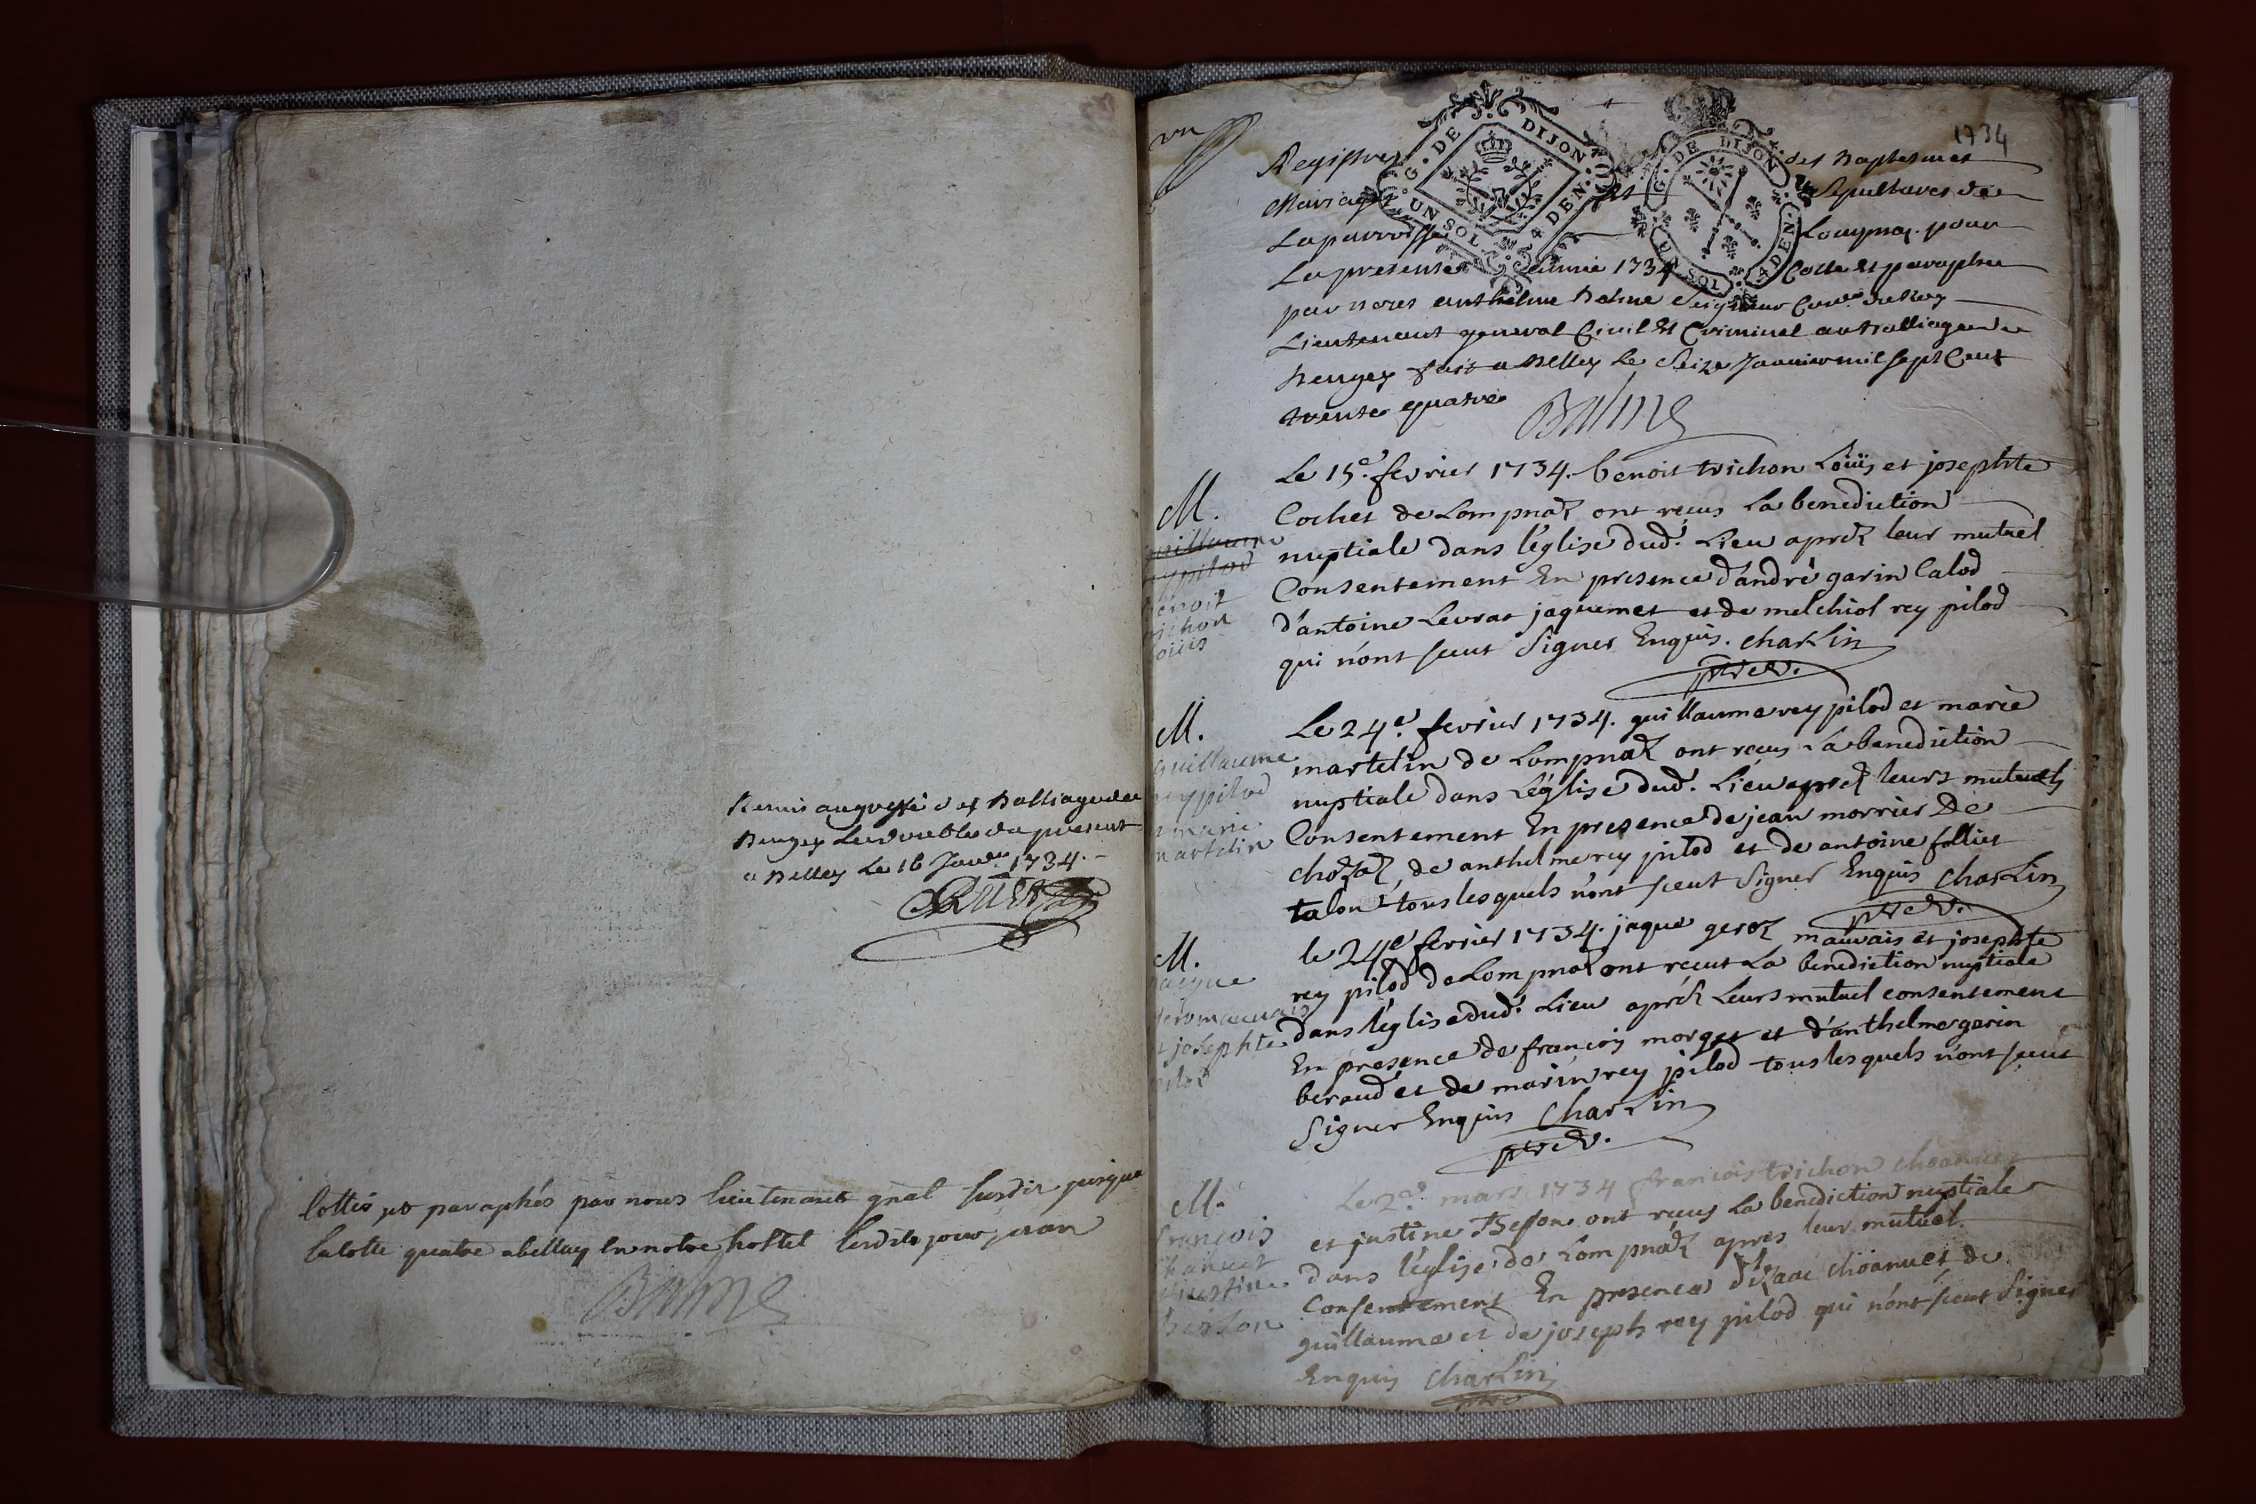 Remis au greffe des Balliage de
Beugey le double du present
a Belley le 16 Janv. 1734.
Cottés et paraphés par nous lieutenant gnal susdit jusqua
la cotte quatre a belley en notre hostel lesdits jour et an
Balme
1734
G. DE DIJON
UN SOL 4 DEN.
G. DE DIJON
U. SOL 4 DEN.
un
Registre des Baptesmes
Mariages et Sepultures de
La parroisse Lompnaz pour
La presente année 1734 Cotté et paraphée
par nous anthelme Balme Seigneur Conser du Roy
Lieutenant general Civil et Criminel au Balliage de
Beugey fait a Belley le Seize Janvier mil sept Cent
trente quatre
Balme
M.
guillaume
reypilod
benoit
trichon
Loüis
Le 15e. fevrier 1734. benoit trichon Loüis et josephte
Cochet de Lompnaz ont reçus La benediction
nuptiale dans l'église dud. Lieu aprez leur mutuel
Consentement En presence d'andré garin Calod
d'antoine Levrat jaquemet et de melchiol rey pilod
qui n'ont sceut Signer Enquis. Charlin
M.
guillaume
reypilod
marie
martelin
Le 24e. fevrier 1734. guillaume rey pilod et marie
martelin de Lompnaz ont reçus La benediction
nuptiale dans L'église dud. Lieu aprez leurs mutuels
Consentement En presence de jean morrier De
chozaz, de anthelme rey pilod et de antoine folliet
talon tous lesquels n'ont sceut Signer Enquis Charlin
M.
jaque
geromauvais
et josephte
pilod
le 24e fevrier 1734. jaque geroz mauvais et josephte
rey pilod de Lompnaz ont reçut La benediction nuptiale
dans l'église dud. Lieu apréz Leurs mutuel consentement
En presence de francois morget et d'anthelme garin
beraud et de marin rey pilod tous lesquels n'ont sceut
Signer Enquis Charlin
M.
francois
chanuet
justine
besson
Le 2e. mars 1734 francois trichon choanuet
et justine Besson ont reçus La benediction nuptiale
dans l'église de Lompnaz apres leur mutuel
Consentement En presence d'izaac choanuet de
guillaume et de joseph rey pilod qui n'ont sceut Signer
Enquis Charlin